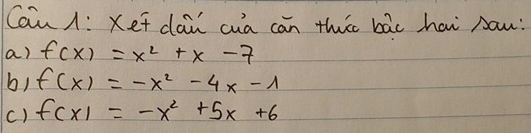 Câu 1: Xét dấu của căn thức bậc hai sau:
a) f(x) = x² + x - 7
b) f(x) = -x² - 4x - 1
c) f(x) = -x² + 5x + 6